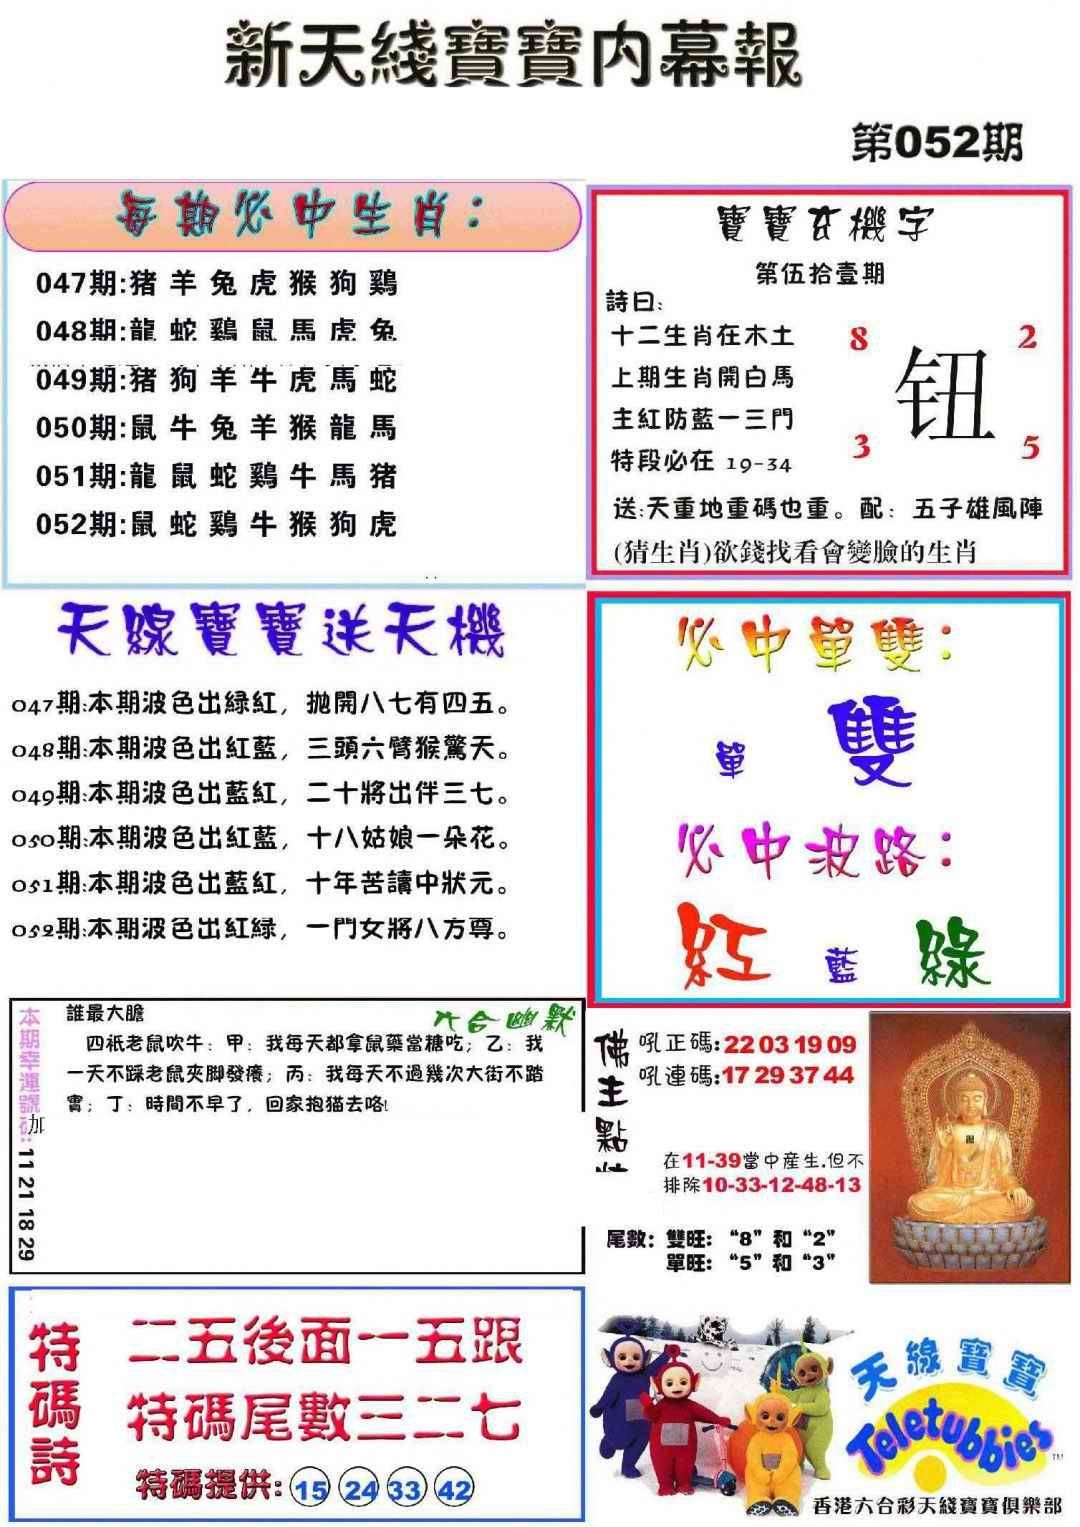 新天綫寶寶内幕報
第052期
每期必中生肖：
047期:猪羊兔虎猴狗鷄
048期:龍蛇鷄鼠馬虎兔
049期:猪狗羊牛虎馬蛇
050期:鼠牛兔羊猴龍馬
051期:龍鼠蛇鷄牛馬猪
052期:鼠蛇鷄牛猴狗虎
寶寶玄機字
第伍拾壹期
詩曰:
十二生肖在木土
上期生肖開白馬
主紅防藍一三門
特段必在 19-34
8
2
钮
3
5
送:天重地重碼也重。配：五子雄風陣
(猜生肖)欲錢找看會變臉的生肖
天線寶寶送天機
047期:本期波色出緑紅，抛開八七有四五。
048期:本期波色出紅藍，三頭六臂猴驚天。
049期:本期波色出藍紅，二十將出伴三七。
050期:本期波色出紅藍，十八姑娘一朵花。
051期:本期波色出藍紅，十年苦讀中狀元。
052期:本期波色出紅緑，一門女將八方尊。
必中單雙：
單 雙
必中波路：
紅 藍 綠
本期幸運號碼: 11 21 18 29
加
六合幽默
誰最大膽
四衹老鼠吹牛：甲：我每天都拿鼠藥當糖吃；乙：我
一天不踩老鼠夾脚發癢；丙：我每天不過幾次大街不踏
實；丁：時間不早了，回家抱猫去咯!
佛主點
吼正碼:22 03 19 09
吼連碼:17 29 37 44
在11-39當中産生.但不
排除10-33-12-48-13
尾數：雙旺：“8”和“2”
單旺：“5”和“3”
特碼詩
二五後面一五跟
特碼尾數三二七
特碼提供: 15 24 33 42
天線寶寶
Teletubbies
TM
香港六合彩天綫寶寶俱樂部